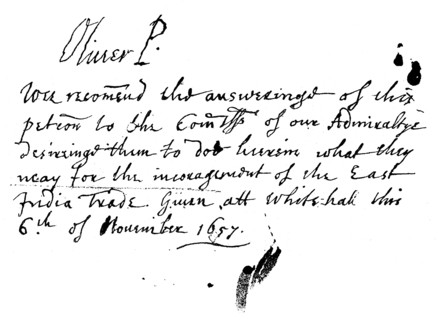 Oliver P.
Wee recom̄end the answeringe of this
petic̄on to the Com̄rs of our Admiraltye
desireinge them to doe herein what they
may for the incoragement of the East
India Trade. Given att White-hall this
6th of November 1657.